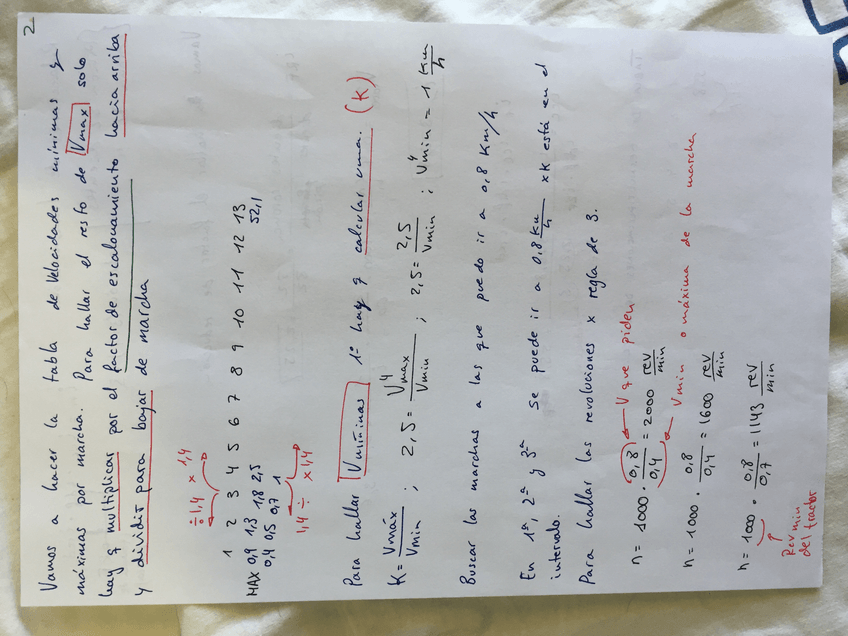 2
Vamos a hacer la tabla de velocidades mínimas y
máximas por marcha. Para hallar el resto de Vmax solo
hay q multiplicar por el factor de escalonamiento hacia arriba
y dividir para bajar de marcha
÷1,4 × 1,4
1 2 3 4 5 6 7 8 9 10 11 12 13
MAX 0,9 1,3 1,8 2,5 52,1
0,4 0,5 0,7 1
1,4 ÷ × 1,4
Para hallar Vmínimas 1º hay q calcular una. (K)
K = Vmáx / Vmin ; 2,5 = V4max / Vmin ; 2,5 = 2,5 / Vmin ; V4min = 1 Km/h
Buscar las marchas a las que puedo ir a 0,8 Km/h
En 1ª, 2ª y 3ª se puede ir a 0,8 Km/h xk está en el
intervalo.
Para hallar las revoluciones x regla de 3.
n = 1000 · 0,8 / 0,4 = 2000 rev/min
V que piden
Vmin o máxima de la marcha
n = 1000 · 0,8 / 0,4 = 1600 rev/min
n = 1000 · 0,8 / 0,7 = 1143 rev/min
Rev min
del tractor